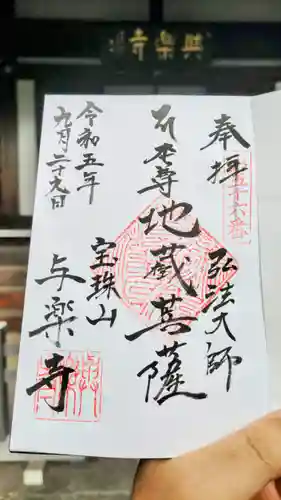 與樂寺
奉拝
第五十六番
弘法大師
本尊
地蔵菩薩
宝珠山
与楽寺
令和五年
九月二十九日